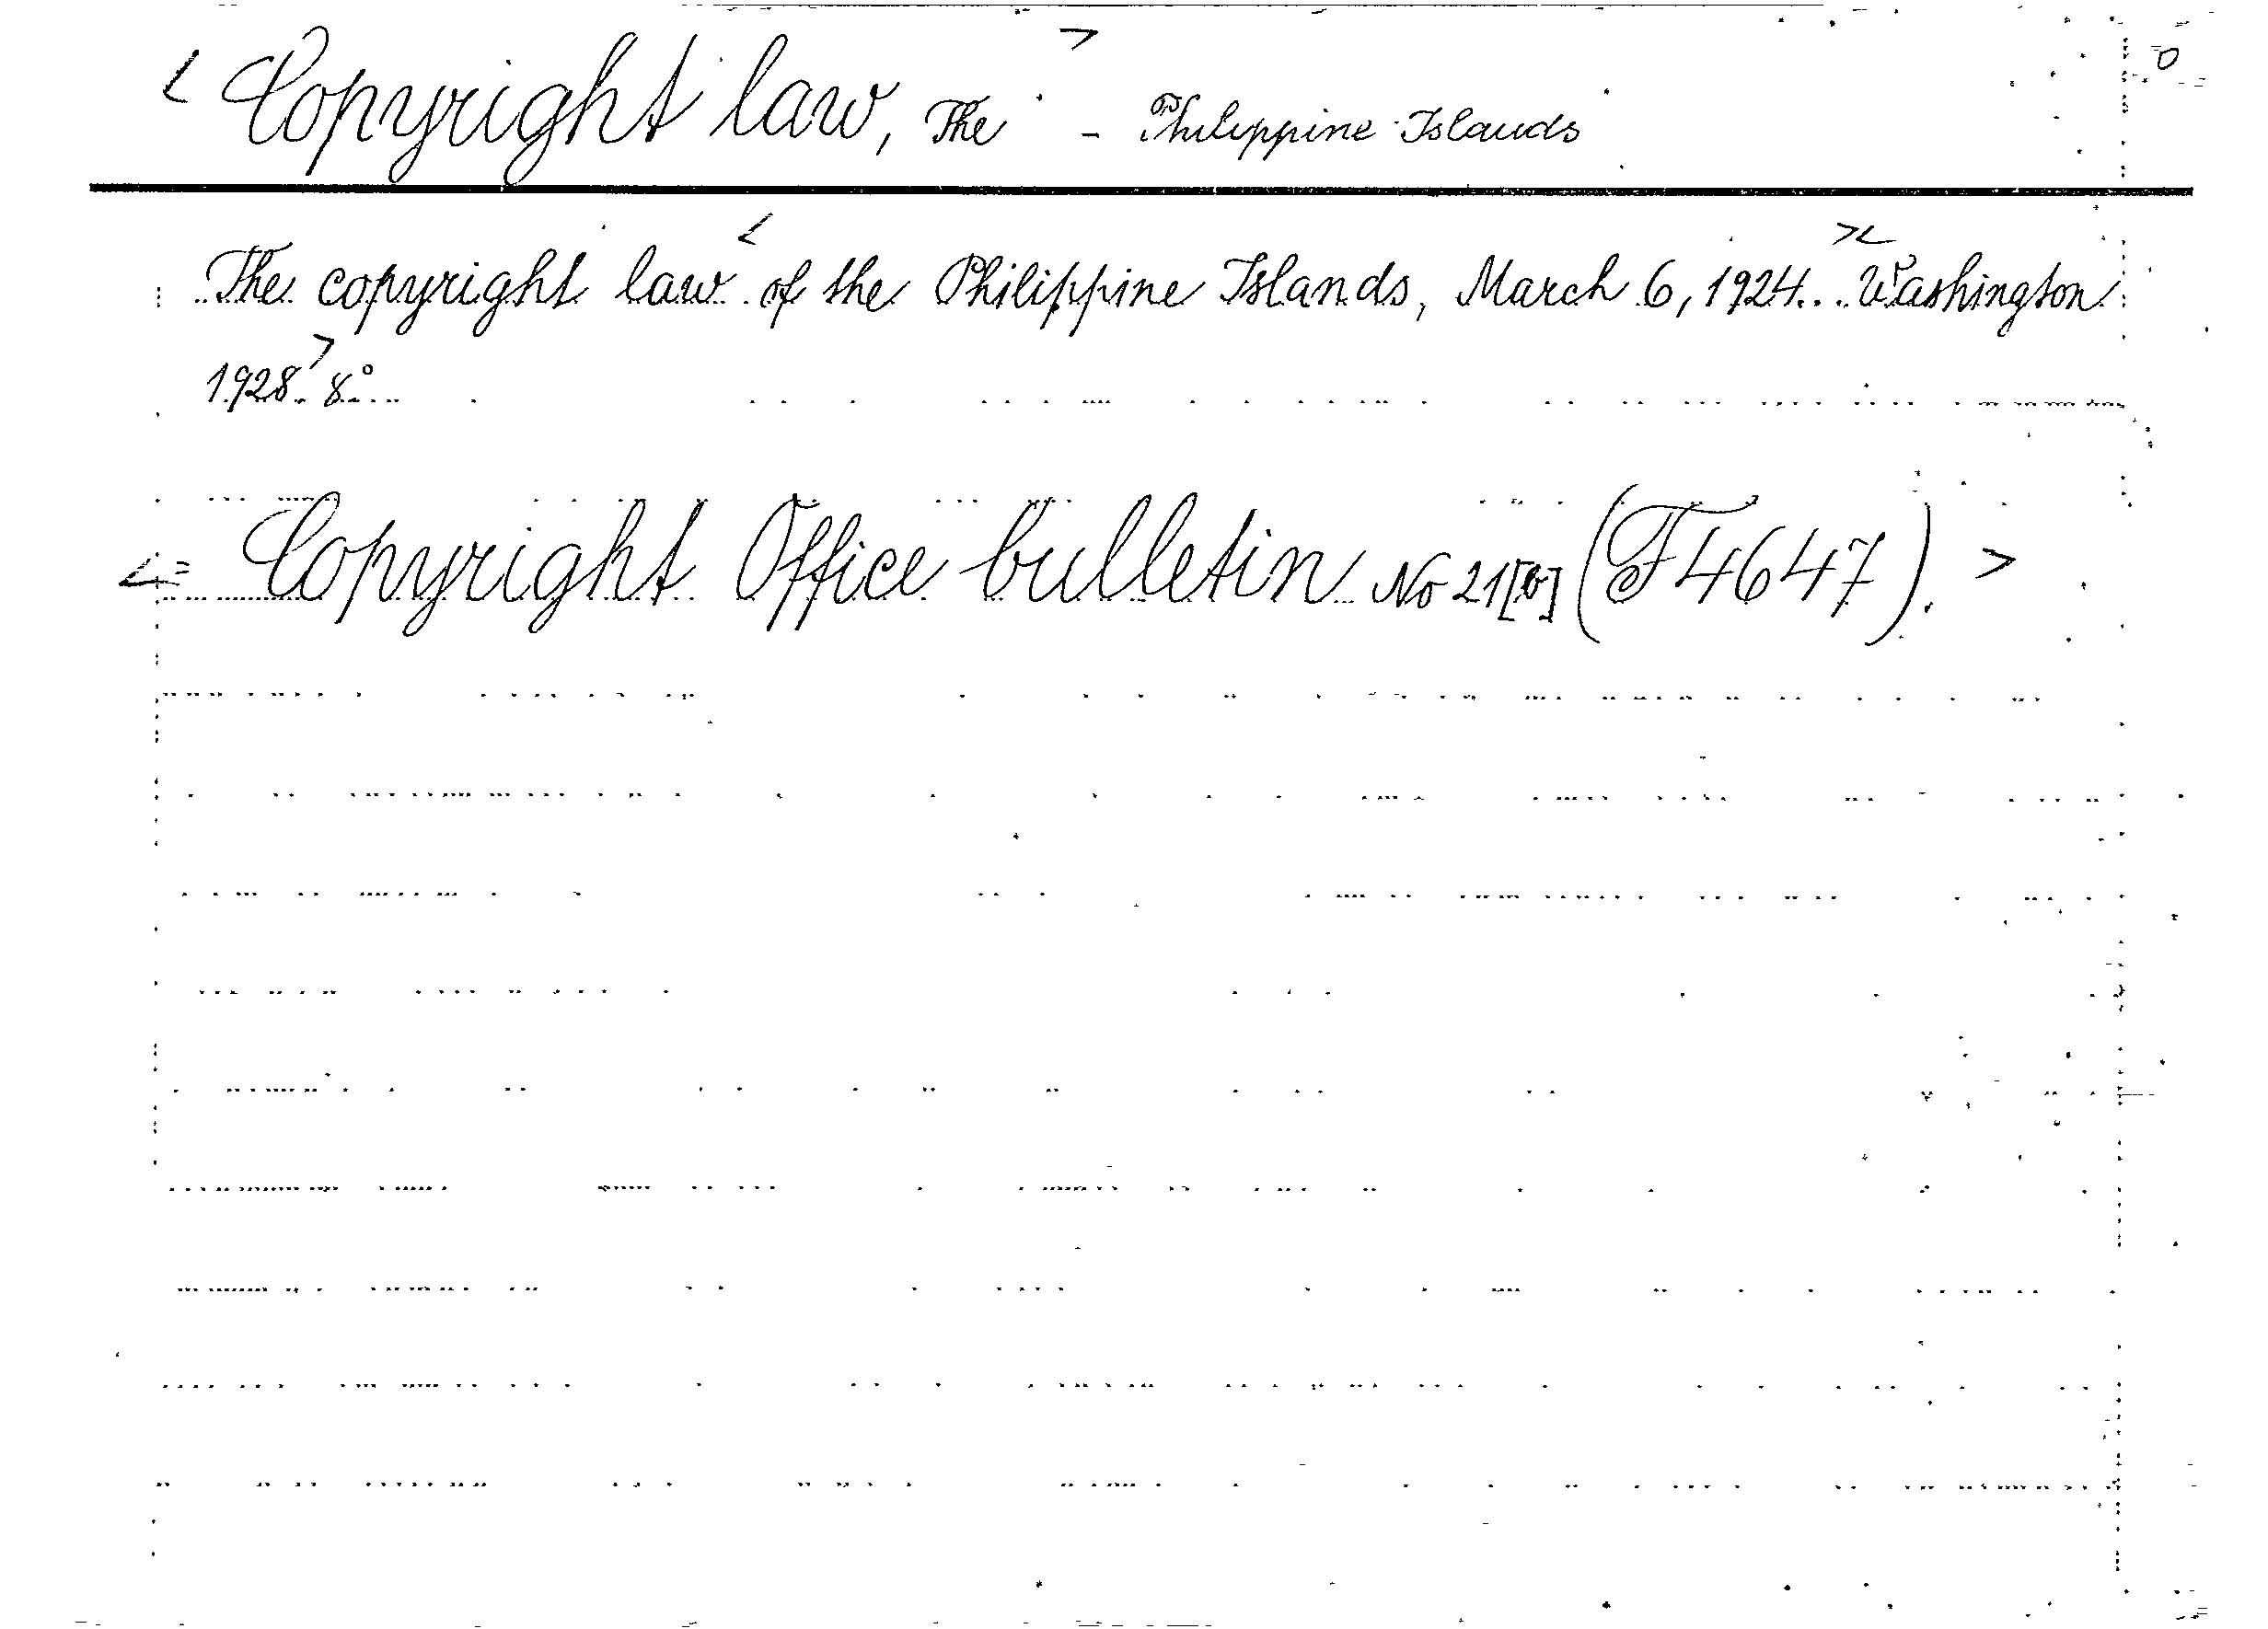 < Copyright law, The > - Philippine Islands
The copyright law < of the Philippine Islands, March 6, 1924... >< Washington
1928. > 8°.
<= Copyright Office bulletin No 21[b] (F4647). >